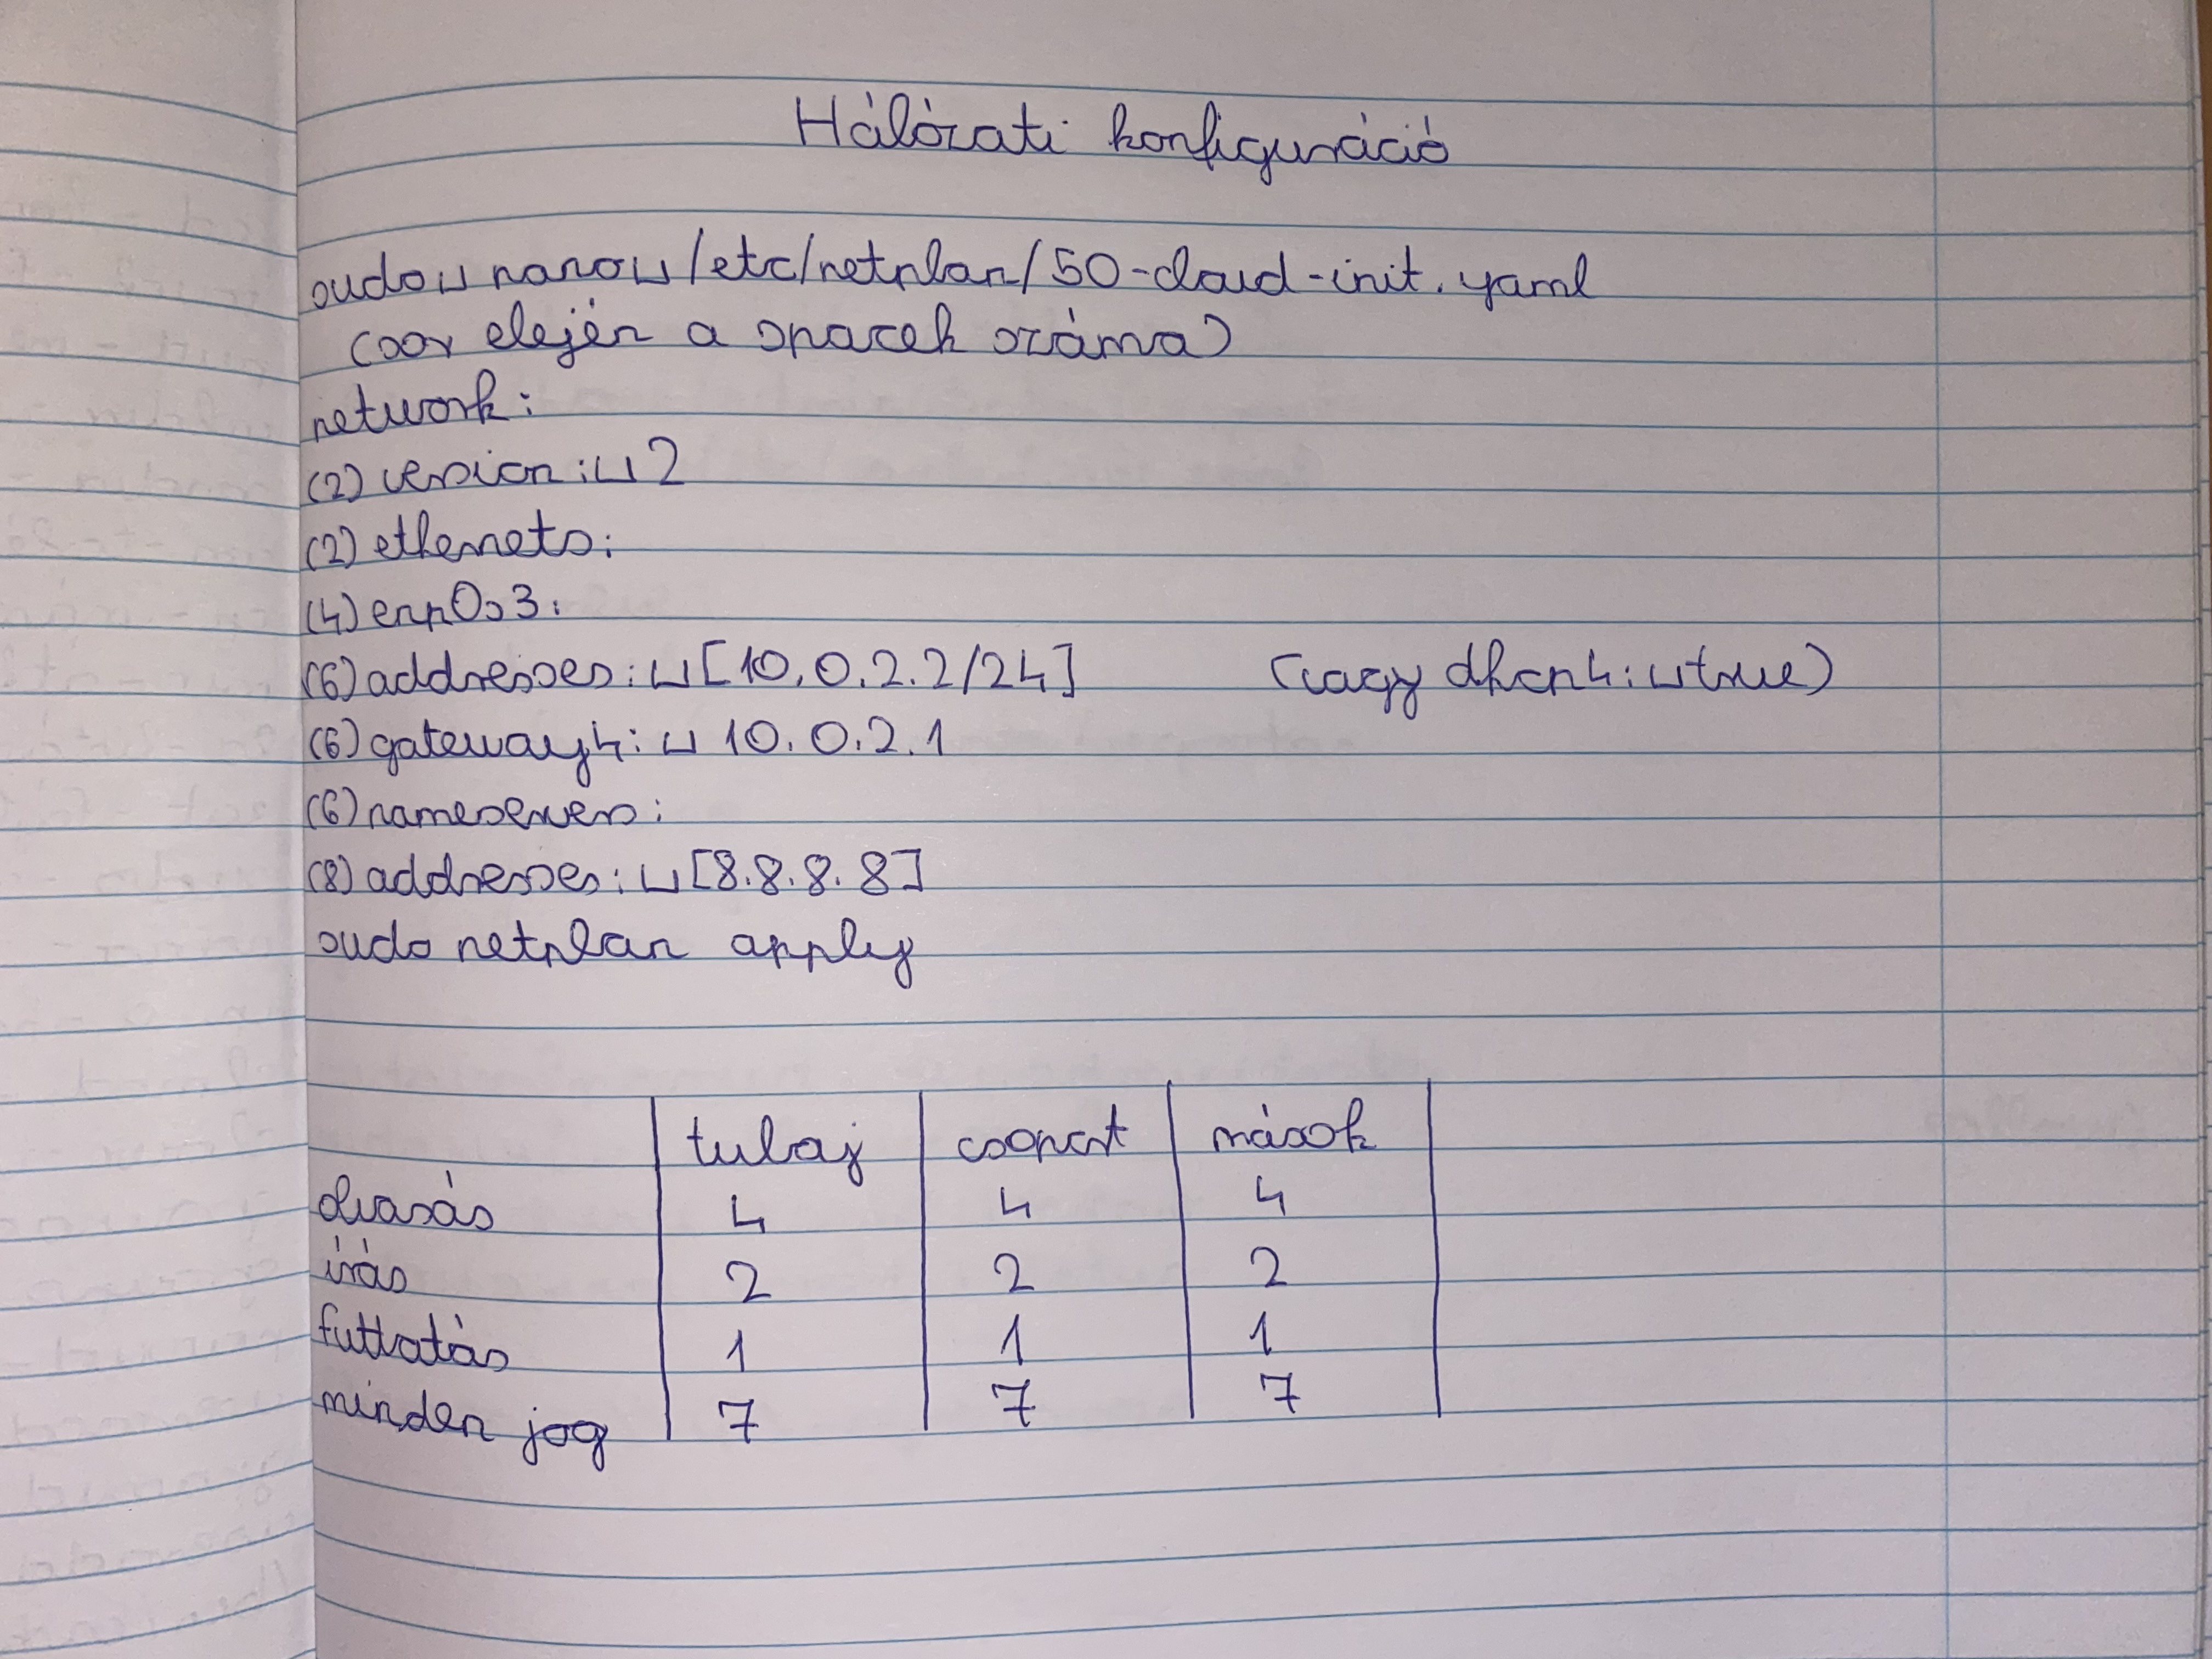 Hálózati konfiguráció
sudo␣nano␣/etc/netplan/50-cloud-init.yaml
(sor elején a spacek száma)
network:
(2) version:␣2
(2) ethernets:
(4) enp0s3:
(6) addresses:␣[10.0.2.2/24] (vagy dhcp4:␣true)
(6) gateway4:␣10.0.2.1
(6) nameservers:
(8) addresses:␣[8.8.8.8]
sudo netplan apply
tulaj csoport mások
olvasás 4 4 4
írás 2 2 2
futtatás 1 1 1
minden jog 7 7 7